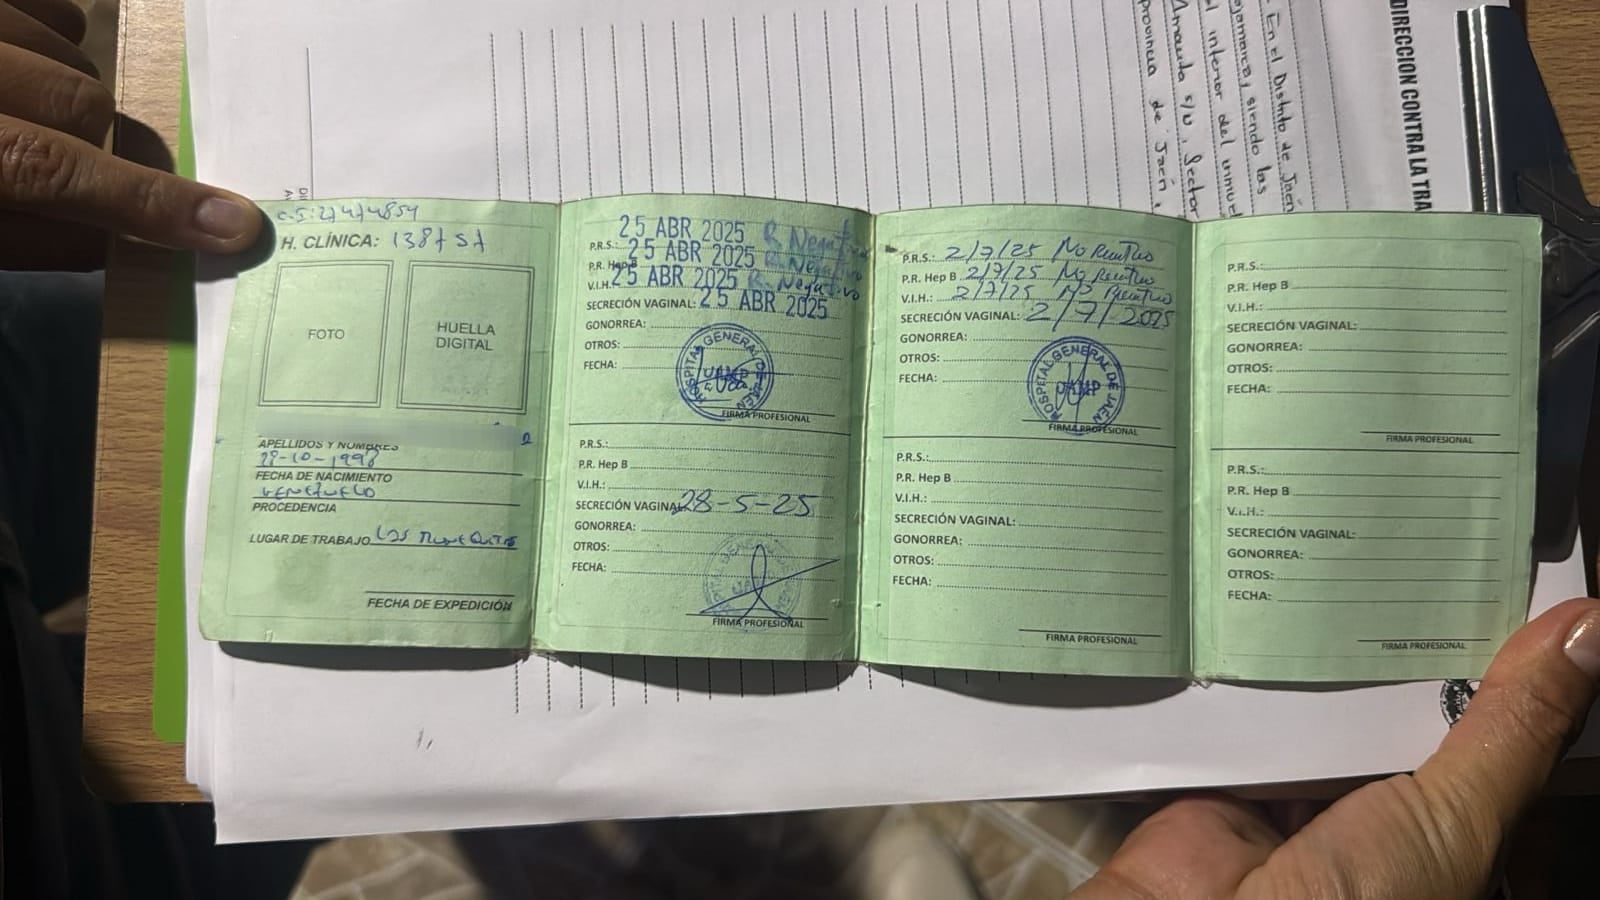 C.S: 27474854
H. CLÍNICA: 1387 57
FOTO
HUELLA
DIGITAL
APELLIDOS Y NOMBRES
FECHA DE NACIMIENTO
VENEZUELA
PROCEDENCIA
LUGAR DE TRABAJO LOS
FECHA DE EXPEDICIÓN
25 ABR 2025 R. Negativo
P.R.S.: 25 ABR 2025 R. Negativo
P.R. Hep B
V.I.H. 25 ABR 2025 R. Negativo
SECRECIÓN VAGINAL: 25 ABR 2025
GONORREA:
OTROS:
FECHA:
HOSPITAL GENERAL DE JAEN
UAMP
FIRMA PROFESIONAL
P.R.S.:
P.R. Hep B
V.I.H.:
SECRECIÓN VAGINAL 28-5-25
GONORREA:
OTROS:
FECHA:
FIRMA PROFESIONAL
P.R.S.: 2/7/25 No Reactivo
P.R. Hep B 2/7/25 No Reactivo
V.I.H.: 2/7/25 No Reactivo
SECRECIÓN VAGINAL: 2/7/2025
GONORREA:
OTROS:
FECHA:
HOSPITAL GENERAL DE JAEN
UAMP
FIRMA PROFESIONAL
P.R.S.:
P.R. Hep B
V.I.H.:
SECRECIÓN VAGINAL:
GONORREA:
OTROS:
FECHA:
FIRMA PROFESIONAL
P.R.S.:
P.R. Hep B
V.I.H.:
SECRECIÓN VAGINAL:
GONORREA:
OTROS:
FECHA:
FIRMA PROFESIONAL
P.R.S.:
P.R. Hep B
V.I.H.:
SECRECIÓN VAGINAL:
GONORREA:
OTROS:
FECHA:
FIRMA PROFESIONAL
DIRECCION CONTRA LA TRA
En el Distrito de Jaén
siendo las
el interior del inmue
Amauta S/N, Sector
provincia de Jaén,